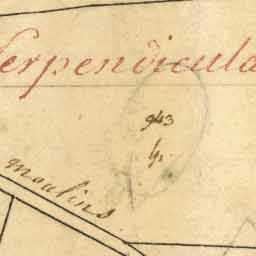 Perpendicula
943
moulins